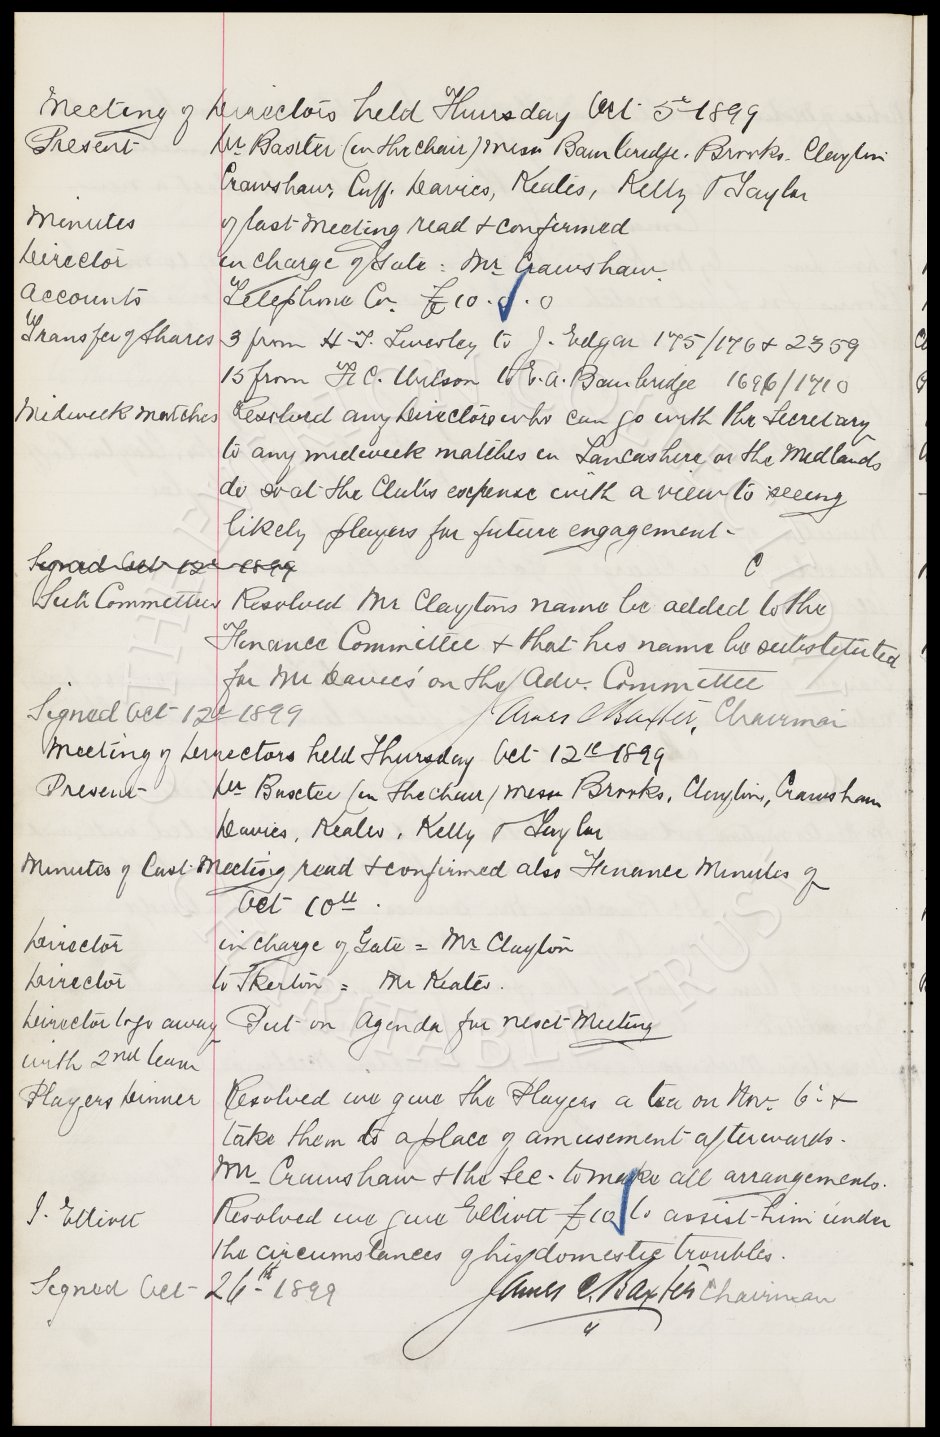 Meeting of Directors held Thursday Oct 5th 1899
Present Dr Baxter (in the chair) Messrs Bainbridge, Brooks, Clayton
Crawshaw, Cuff, Davies, Keates, Kelly & Taylor
Minutes of last Meeting read & confirmed
Director in charge of Gate = Mr Crawshaw.
Accounts Telephone Co. £10.0.0
Transfer of Shares 3 from H. T. to J. Edgar 175/176 & 2359
15 from H. C. Wilson to E. A. Bainbridge 1696/1710
Midweek Matches Resolved any Directors who can go with the Secretary
to any midweek matches in Lancashire or the Midlands
do so at the Clubs expense with a view to seeing
likely players for future engagement.
Signed Oct 12th 1899
Sub Committees Resolved Mr Claytons name be added to the
Finance Committee & that his name be substituted
for Mr Davies' on the Adv. Committee
Signed Oct 12th 1899 James C Baxter, Chairman
Meeting of Directors held Thursday Oct 12th 1899
Present Dr Baxter (in the chair) Messrs Brooks, Clayton, Crawshaw
Davies, Keates, Kelly & Taylor
Minutes of Last Meeting read & confirmed also Finance Minutes of
Oct 10th.
Director in charge of Gate = Mr Clayton
Director to Skerton = Mr Keates.
Director to go away Put on Agenda for next Meeting
with 2nd team
Players Dinner Resolved we give the Players a tea on Nov. 6th &
take them to a place of amusement afterwards.
Mr Crawshaw & the Sec. to make all arrangements.
J. Elliott Resolved we give Elliott £10 to assist him under
the circumstances of his domestic troubles.
Signed Oct 26th 1899 James C. Baxter Chairman